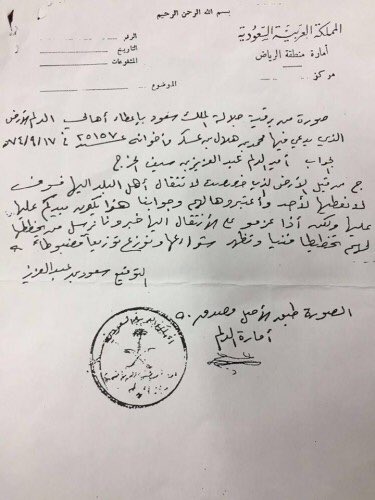 بسم الله الرحمن الرحيم
المملكة العربية السعودية
أمارة منطقة الرياض
مركز
الرقم
التاريخ
المشفوعات
الموضوع
صورة من برقية جلالة الملك سعود بإعطاء أهالي الدلم الأرض
الذي يدعي فيها محمد بن هلال بن عسكر وأخوانه عدد ٢٥١٥٧ في ٧٤/٩/١٧هـ
أمير الدلم عبد العزيز بن سيف الخرج
ج من قبل الأرض الذي خصصت لانتقال أهل البلد اليها فسوف
لا نعطيها لأحد وأعتبروها لهم وجوابنا هذا يكون بيدكم عليها
عليها ولكن أذا عزمو على الأنتقال اليها خبرونا نرسل من يخططها
لهم تخطيطا فنيا وتظهر شوارعها وتوزع توزيعا مضبوطا
التوقيع سعود بن عبد العزيز
الصورة طبق الأصل
أمارة الدلم